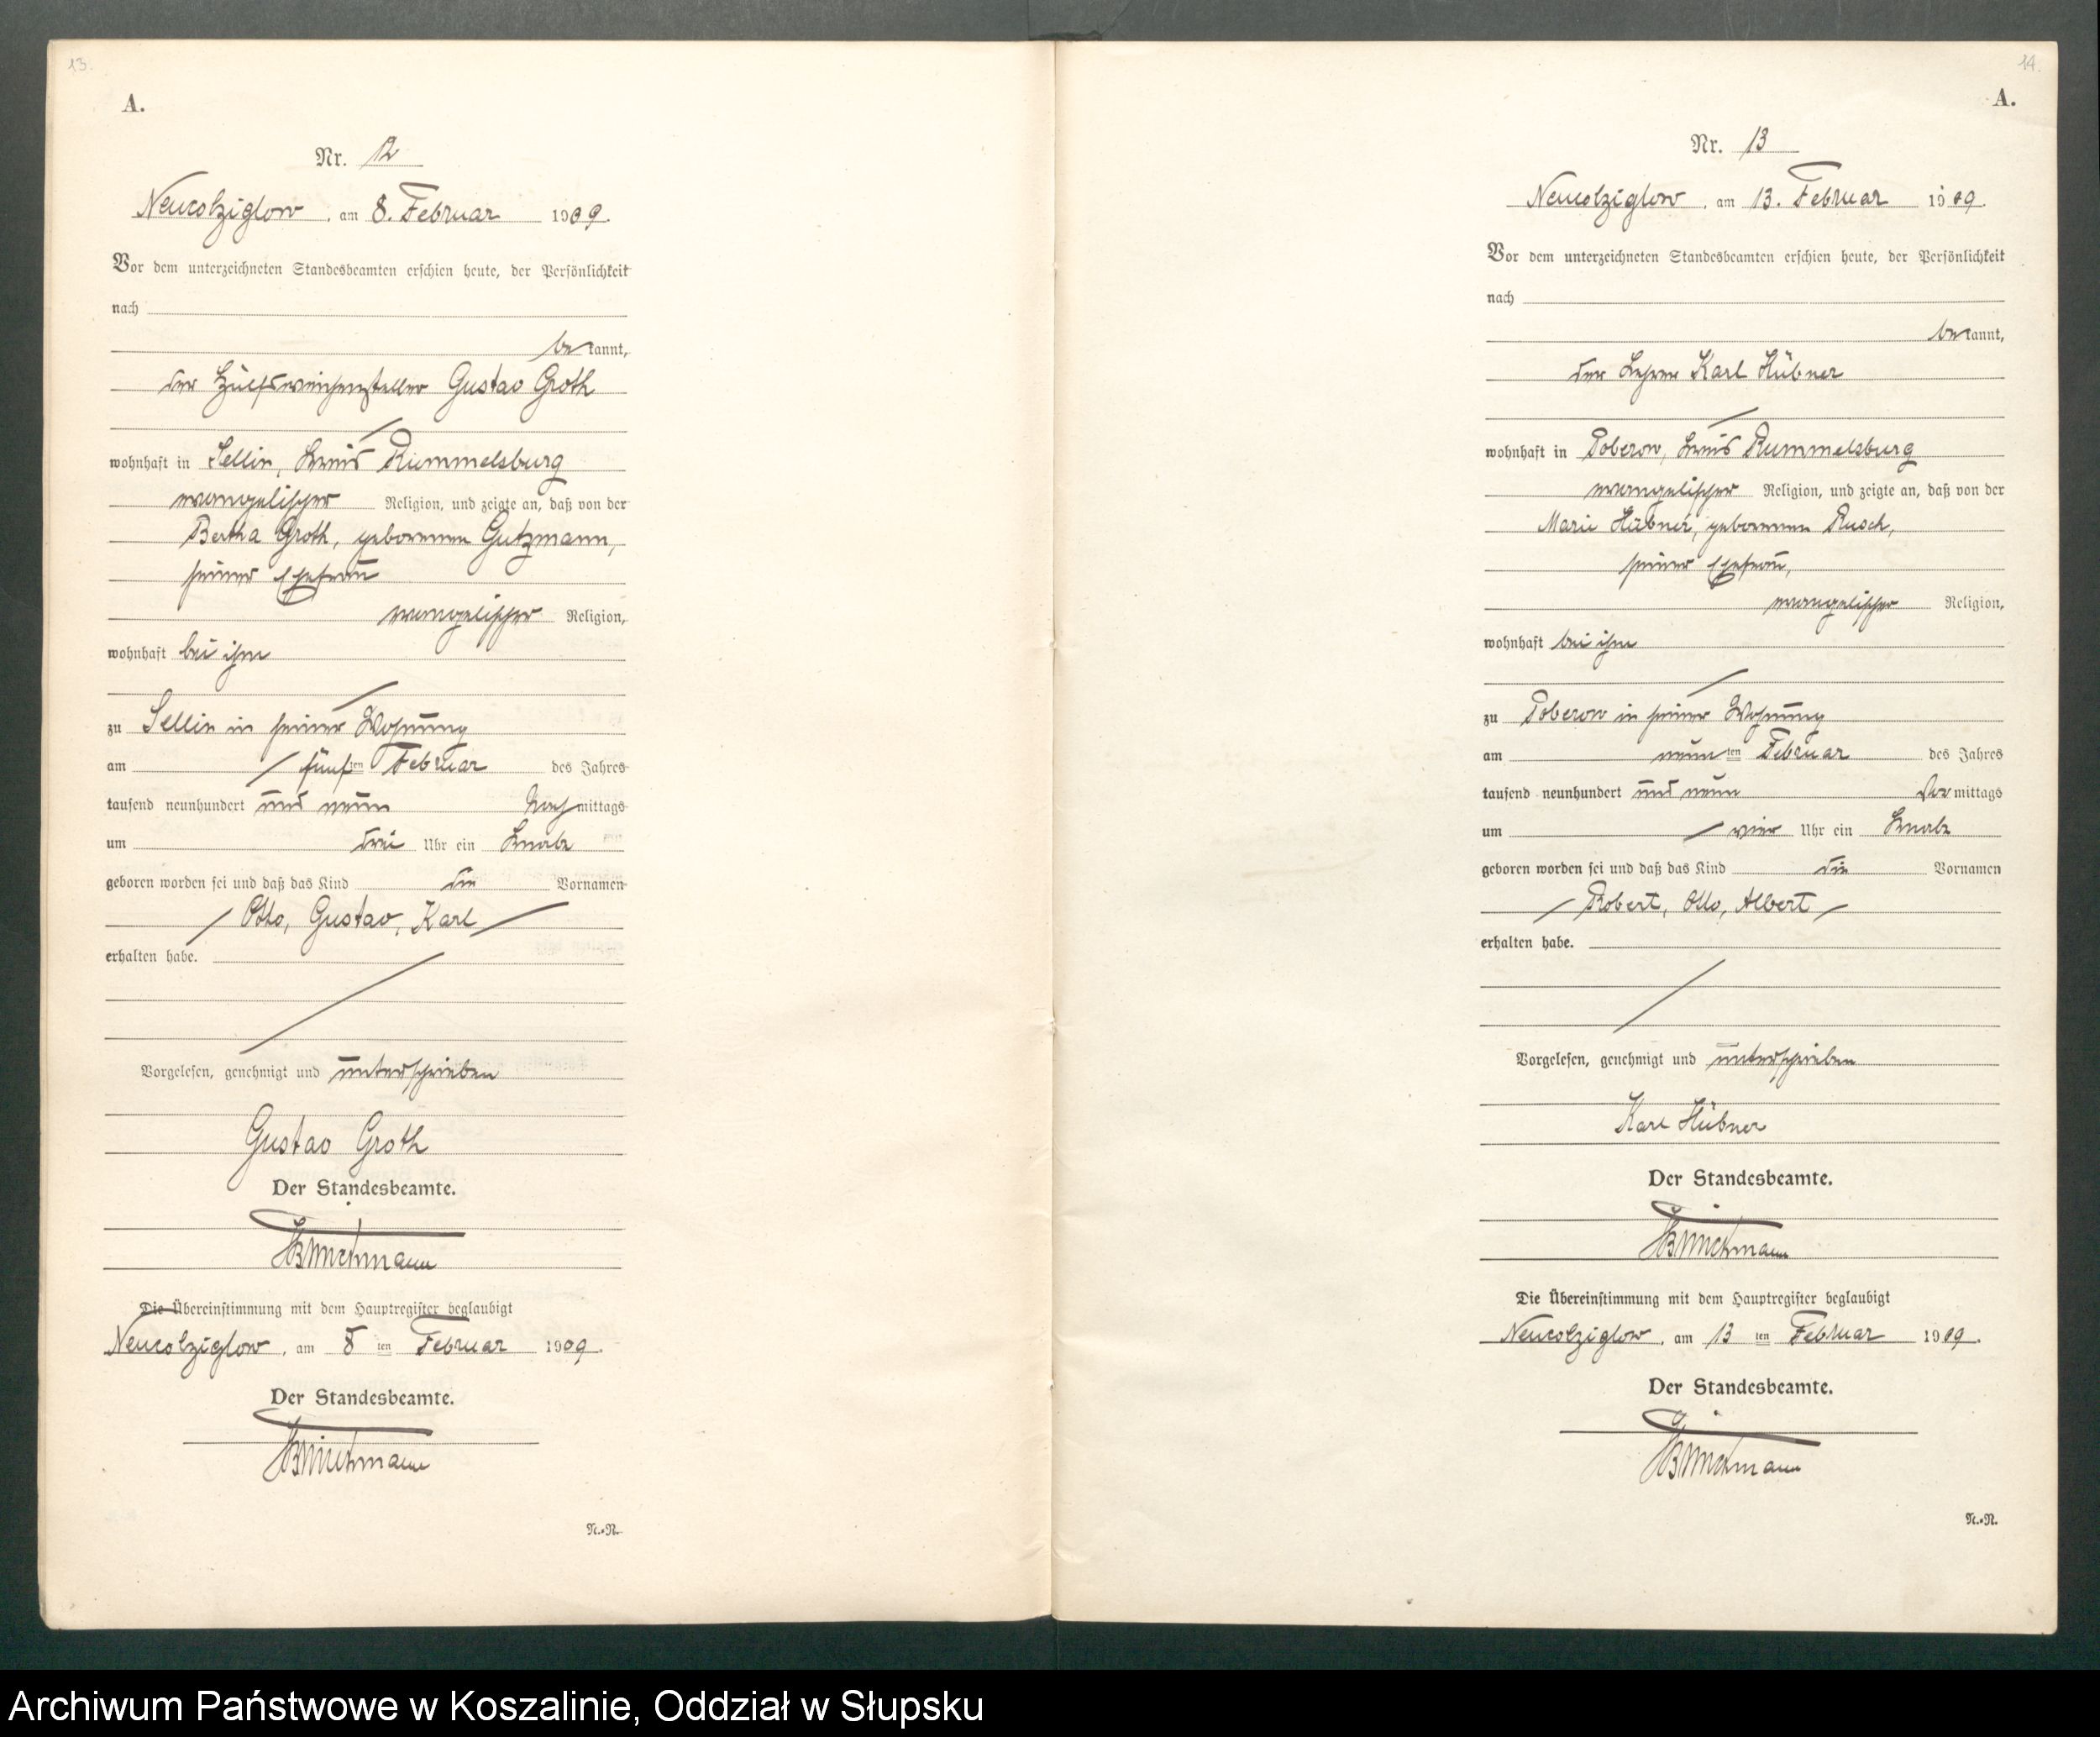 13.
A.
Nr. 12
Neukolziglow, am 8. Februar 1909.
Vor dem unterzeichneten Standesbeamten erschien heute, der Persönlichkeit
nach
bekannt,
der Hülfsweichensteller Gustav Groth
wohnhaft in Sellin, Kreis Rummelsburg
evangelischer Religion, und zeigte an, daß von der
Bertha Groth, geborenen Gutzmann,
seiner Ehefrau
evangelischer Religion,
wohnhaft bei ihm
zu Sellin in seiner Wohnung
am fünften Februar des Jahres
tausend neunhundert und neun Nachmittags
um drei Uhr ein Knabe
geboren worden sei und daß das Kind die Vornamen
Otto, Gustav, Karl
erhalten habe.
Vorgelesen, genehmigt und unterschrieben
Gustav Groth
Der Standesbeamte.
Die Übereinstimmung mit dem Hauptregister beglaubigt
Neukolziglow, am 8ten Februar 1909.
Der Standesbeamte.
N.-R.
14.
A.
Nr. 13
Neukolziglow, am 13. Februar 1909.
Vor dem unterzeichneten Standesbeamten erschien heute, der Persönlichkeit
nach
bekannt,
der Lehrer Karl Hübner
wohnhaft in Poberow, Kreis Rummelsburg
evangelischer Religion, und zeigte an, daß von der
Marie Hübner, geborenen Rusch,
seiner Ehefrau,
evangelischer Religion,
wohnhaft bei ihm
zu Poberow in seiner Wohnung
am neunten Februar des Jahres
tausend neunhundert und neun Vormittags
um vier Uhr ein Knabe
geboren worden sei und daß das Kind die Vornamen
Robert, Otto, Albert
erhalten habe.
Vorgelesen, genehmigt und unterschrieben
Karl Hübner
Der Standesbeamte.
Die Übereinstimmung mit dem Hauptregister beglaubigt
Neukolziglow, am 13ten Februar 1909.
Der Standesbeamte.
N.-R.
Archiwum Państwowe w Koszalinie, Oddział w Słupsku